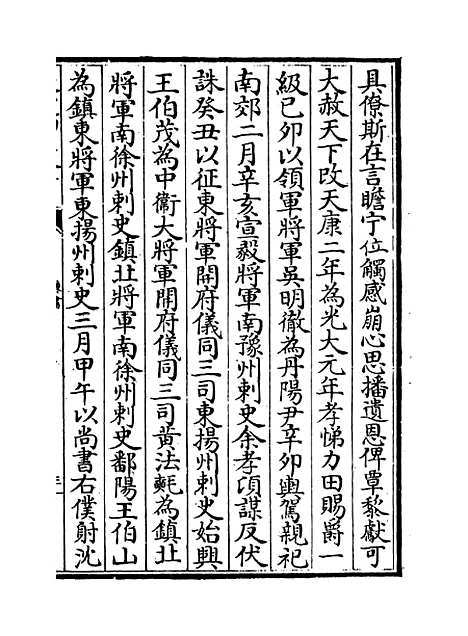 具僚斯在言瞻宁位觸感崩心思播遺恩俾覃黎獻可
大赦天下改天康二年為光大元年孝悌力田賜爵一
級已卯以領軍將軍吳明徹為丹陽尹辛卯輿駕親祀
南郊二月辛亥宣毅將軍南豫州刺史余孝頃謀反伏
誅癸丑以征東將軍開府儀同三司東揚州刺史始興
王伯茂為中衞大將軍開府儀同三司黃法𣰰為鎮北
將軍南徐州刺史鎮北將軍南徐州刺史鄱陽王伯山
為鎮東將軍東揚州刺史三月甲午以尚書右僕射沈